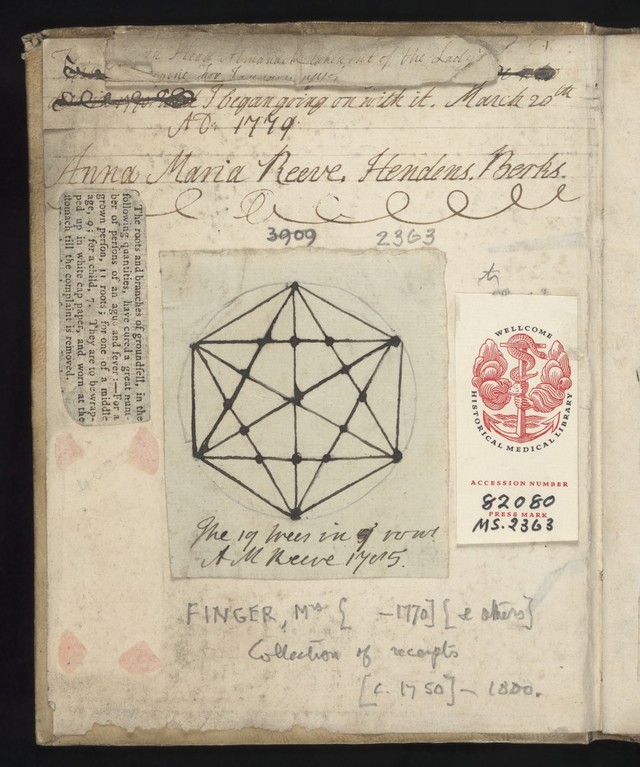 Head, Almanack taken out of the Lady's
I began going on with it. March 20th
AD. 1779
Anna Maria Reeve. Hendens. Berks.
3909 2363
The roots and branches of groundsell, in the
following quantities, have cured a great num-
ber of persons of an ague and fever:—For a
grown person, 11 roots; for one of a middle
age, 9; for a child, 7. They are to be wrap-
ped up in white cap paper, and worn at the
stomach till the complaint is removed.
WELLCOME
HISTORICAL MEDICAL LIBRARY
ACCESSION NUMBER
82080
PRESS MARK
MS. 2363
The 19 trees in 9 rows
A M Reeve 1785.
FINGER, Mrs [ -1770] [& others]
Collection of receipts
[c. 1750] - 1800.